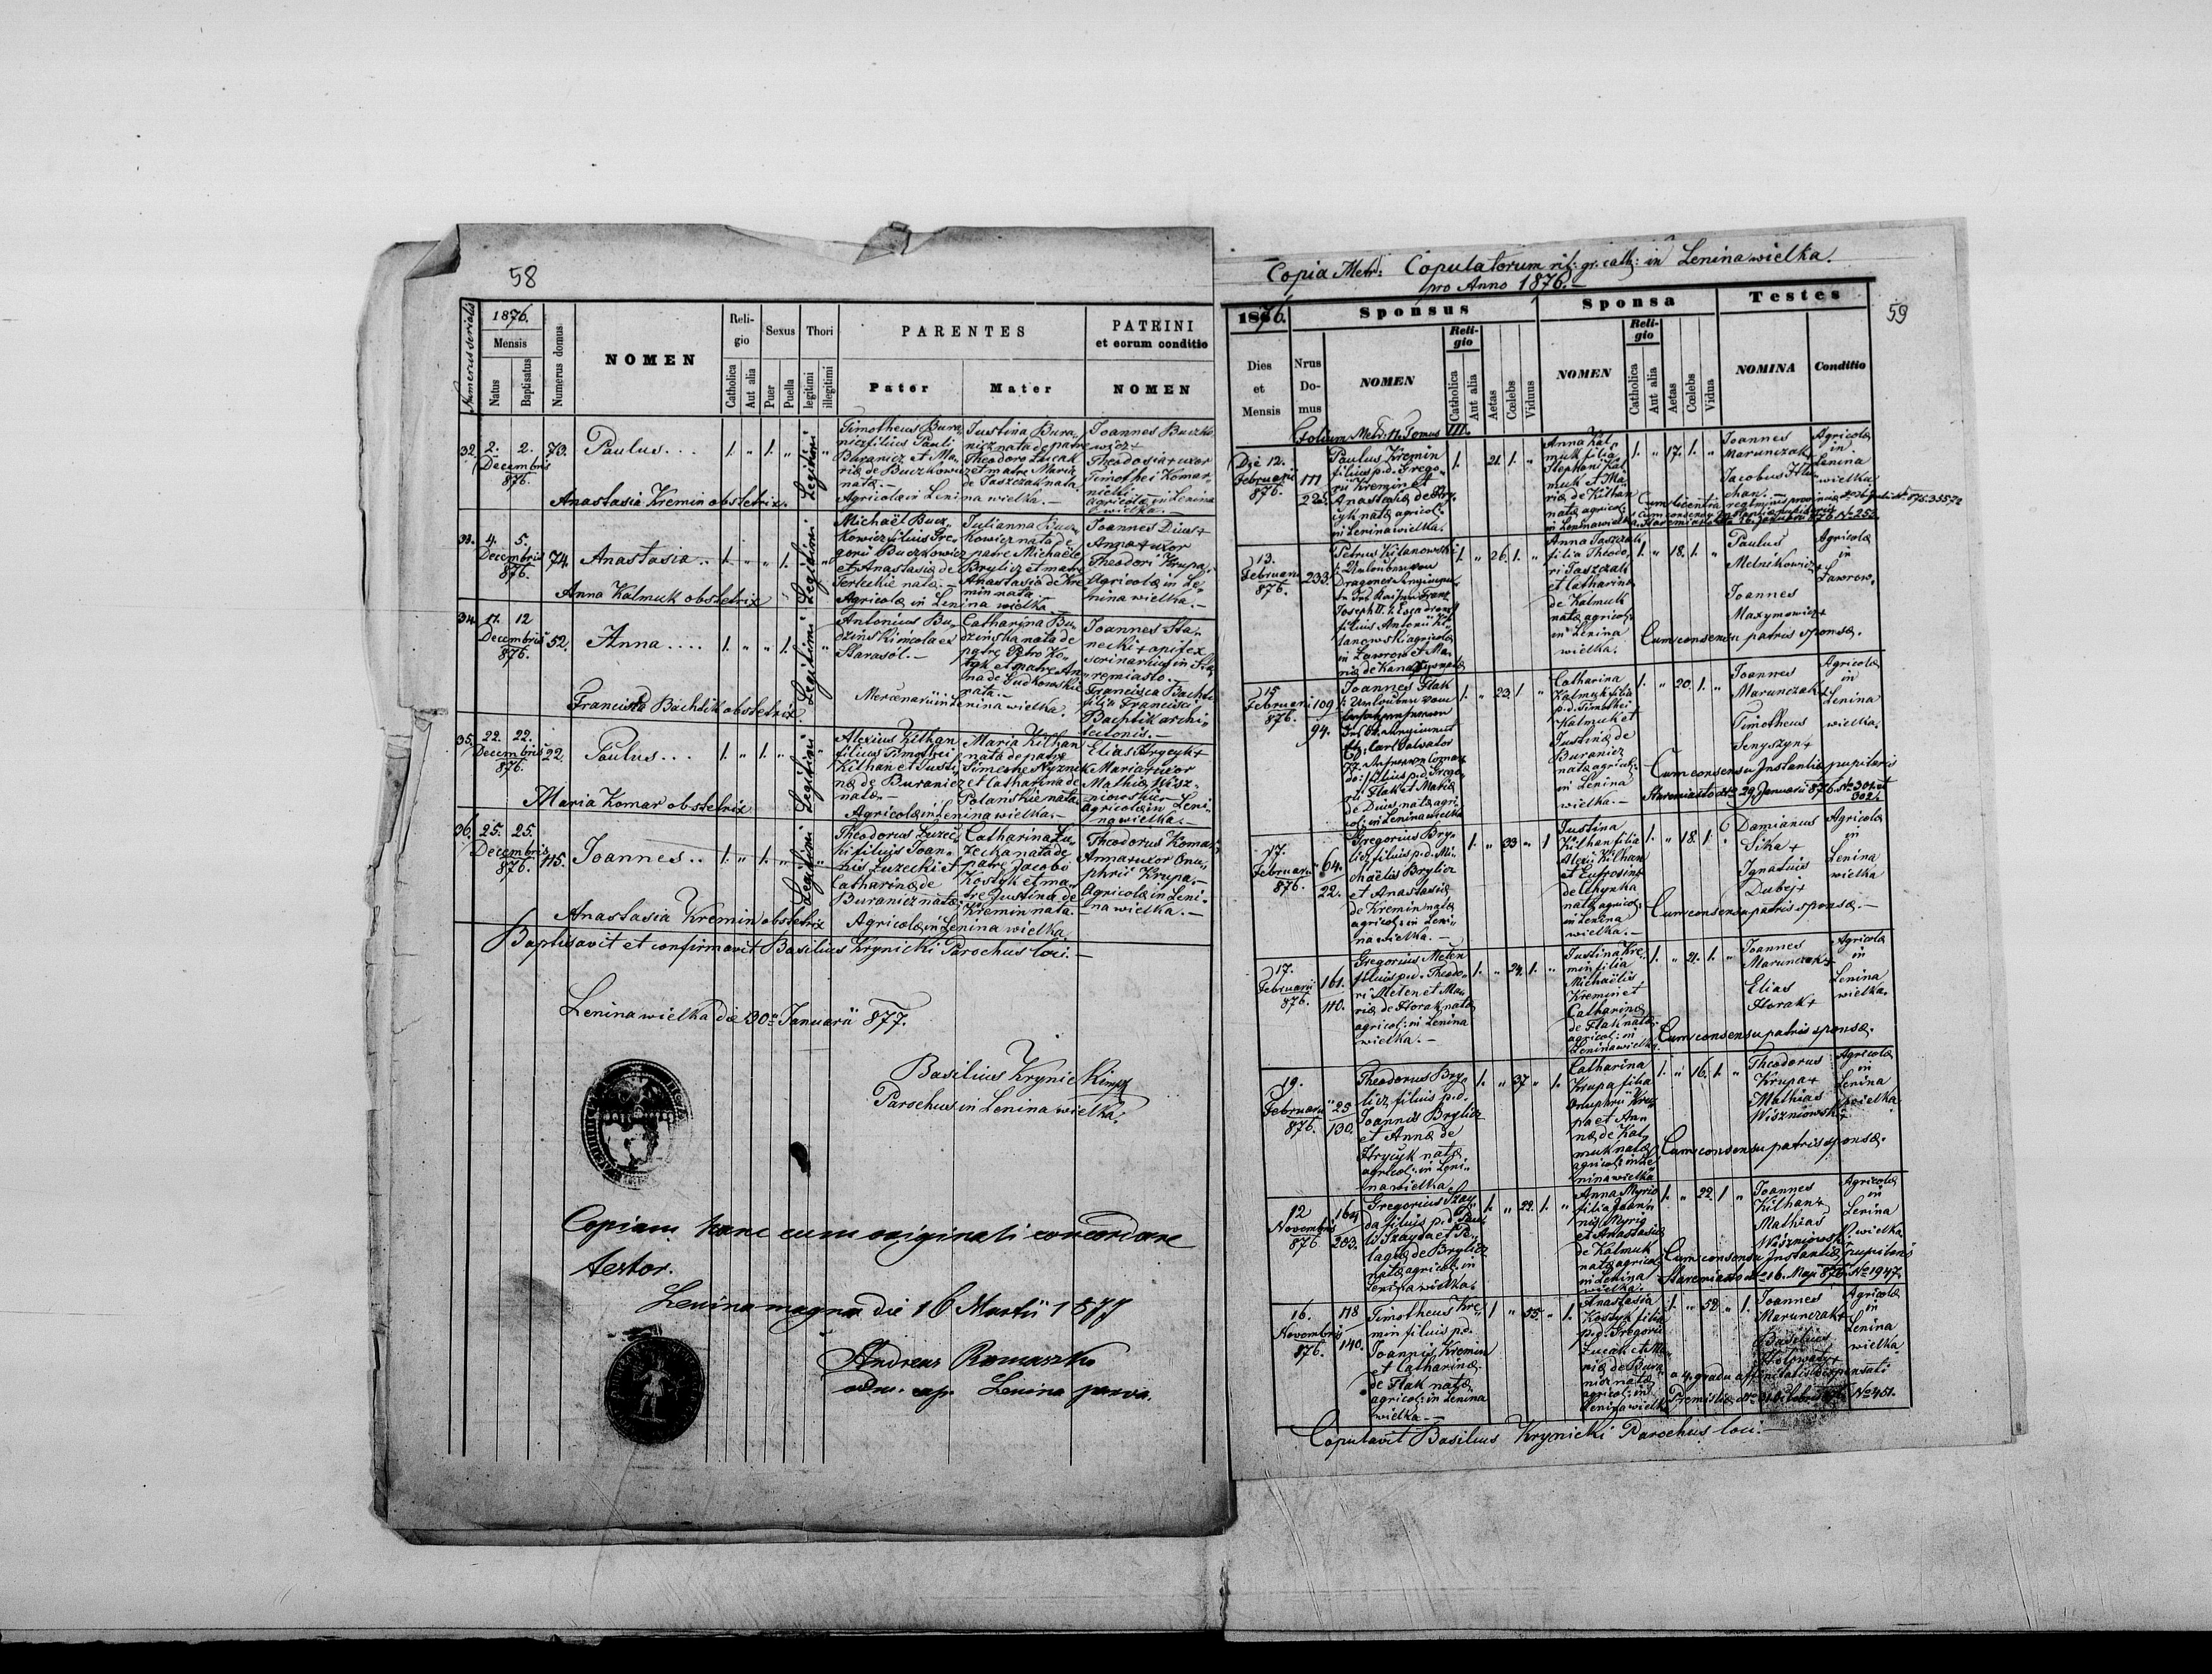 58
Numerus serialis
1876.
Mensis
Natus
Baptisatus
Numerus domus
NOMEN
Reli-
gio
Catholica
Aut alia
Sexus
Puer
Puella
Thori
legitimi
illegitimi
PARENTES
Pater
Mater
PATRINI
et eorum conditio
NOMEN
32. 2. 2. 73. Paulus... 1. " 1. "
Decembris
876.
Legitimi
Timotheus Bura-
nicz filius Pauli
Buranicz et Ma-
riæ de Buczkowicz
natæ.-
Justina Bura-
nicz nata de patre
Theodoro Lucak
et matre Maria
de Taszczak nata.
Agricolæ in Lenina wielka.-
Joannes Buczko
wicz+
Theodosia+uxor
Timothei Komar-
nicki.-
agricolæ in Lenina
wielka.-
Anastasia Kremin obstetrix.
33. 4. 5. 74. Anastasia.. 1. " " 1.
Decembris
876.
Legitimi
Michaël Bucz-
kowicz filius Gre-
gorii Buczkowicz
et Anastasiæ de
Terleckie natæ.-
Julianna Bucz-
kowicz nata de
patre Michaële
Brylicz et matre
Anastasia de Kre
min nata.-
Agricolæ in Lenina wielka
Joannes Dius+
Anna+uxor
Theodori Krupa.
Agricolæ in Le-
nina wielka.-
Anna Kalmuk obstetrix
34. 11. 12 52. Anna.... 1. " " 1.
Decembris
876.
Legitimi
Antonius Bu-
dziński incola ex
Starasól.-
Catharina Bu-
dzińska nata de
patre Petro Ko-
styk et matre An-
na de Gudkowskie
nata.-
Mercenarii in Lenina wielka.
Joannes Sta-
necki+opifex
scrinarius in Sta-
remiasto.-
Francisca Bachtik
filia Francisci
Bachtik archi-
tectonis.-
Francisca Bachtik obstetrix.
35. 22. 22. 22. Paulus... 1. " 1. "
Decembris
876.
Legitimi
Alexius Kilhan
filius Timothei
Kilhan et Justi-
næ de Buranicz
natæ.-
Maria Kilhan
nata de patre
Simeone Nyznik
et Catharina de
Polańskie nata.
Agricolæ in Lenina wielka.-
Elias Hrycyk+
Maria+uxor
Mathiæ Wisz-
niowski.-
agricolæ in Leni-
na wielka.-
Maria Komar obstetrix
36. 25. 25. 115. Joannes.. 1. " 1. "
Decembris
876.
Legitimi
Theodorus Luzec-
ki filius Joan-
nis Luzecki et
Catharinæ de
Buranicz natæ.
Catharina Lu-
zecka nata de
patre Jacobo
Kostyk et ma-
tre Justina de
Kremin nata.-
Agricolæ in Lenina wielka.
Theodorus Komar
Anna+uxor Onu-
phrii Krupa.-
Agricolæ in Leni-
na wielka.-
Anastasia Kremin obstetrix
Baptisavit et confirmavit Basilius Krynicki Parochus loci.-
Lenina wielka die 30ª Januarii 877.
Basilius Krynicki mp
Parochus in Lenina wielka.
Copiam hanc cum originali concordare
testor.
Lenina magna die 16 Martii 1877
Andreas Romaszko
adm. cap. Lenina parva.
59
Copia Metr: Copulatorum rit: gr. cath: in Lenina wielka.
pro Anno 1876.-
1876.
Dies
et
Mensis
Nrus
Do-
mus
Sponsus
NOMEN
Reli-
gio
Catholica
Aut alia
Aetas
Cœlebs
Viduus
Sponsa
NOMEN
Reli-
gio
Catholica
Aut alia
Aetas
Cœlebs
Vidua
Testes
NOMINA
Conditio
Folium Metr: 11. Tomus III.
Die 12.
Februarii
876.
171
225.
Paulus Kremin
filius p.d. Grego-
rii Kremin et
Anastasiæ de Hry-
cyk natæ agricol:
in Lenina wielka.
1. 21. 1. "
Anna Kal-
muk filia
Stephani Kal-
muk et Ma-
riæ de Kilhan
natæ agricol:
in Lenina wielka.
1. " 17. 1. "
Joannes
Marunczak+
Jacobus
Agricolæ
in
Lenina
wielka
13.
Februarii
876.
233.
Petrus Kilanowski
k: Urlauber von
Dragoner Regiment
Kaiser Franz
Joseph
filius Antonii Ki-
lanowski agricolæ
in Lawrow et Ma-
riæ de
1. " 26. 1. "
Anna Taszczak
filia Theodo-
ri Taszczak
et Catharinæ
de Kalmuk
natæ agricol:
in Lenina
wielka.
1. " 18. 1. "
Paulus
Melnikowicz+
Joannes
Maxymowicz+
Agricolæ
in
Lawrow.
Cum consensu patris sponsæ.
15
Februarii
876.
109
94.
Joannes Flak
k: Urlauber vom
Carl Salvator
77.
filius p.d. Grego-
rii Flak et Mariæ
de Dius natæ agri-
col: in Lenina wielka
1. " 23. 1. "
Catharina
Kalmuk filia
p.d. Timothei
Kalmuk et
Justinæ de
Buranicz
natæ agricol:
in Lenina
wielka.-
1. " 20. 1. "
Joannes
Marunczak+
Timotheus
Senyszyn+
Agricolæ
in
Lenina
wielka.
Cum consensu Instantiæ pupilaris
Staremiasto dto 29. Januarii 876. No 301. et
302.
17.
Februarii
876.
64.
22.
Gregorius Bry-
licz filius p.d. Mi-
chaëlis Brylicz
et Anastasiæ
de Kremin natæ
agricol: in Leni-
na wielka.-
1. " 33 " 1
Justina
Kilhan filia
Alexii Kilhan
et Eufrosinæ
de Uhynka
natæ agricol:
in Lenina
wielka.-
1. " 18. 1.
Damianus
Sika+
Ignatius
Dubej+
Agricolæ
in
Lenina
wielka
Cum consensu patris sponsæ.-
17.
Februarii
876.
161.
110.
Gregorius Meten
filius p.d. Theodo-
ri Meten et Ma-
riæ de Horak natæ
agricol: in Lenina
wielka.-
1. " 24. 1. "
Justina Kre-
min filia
Michaëlis
Kremin et
Catharinæ
de Flak natæ
agricol: in
Lenina wielka.
1. " 21. 1. "
Joannes
Marunczak+
Elias
Horak+
Agricolæ
in
Lenina
wielka.
Cum consensu patris sponsæ.
19.
Februarii
876.
25
130.
Theodorus Bry-
licz filius p.d.
Joannis Brylicz
et Annæ de
Hrycyk natæ
agricol: in Leni-
na wielka
1. " 37 " 1.
Catharina
Krupa filia
Onuphrii Kru-
pa et An-
næ de Kal-
muk natæ
agricol: in Le-
nina wielka
1. " 16. 1. "
Theodorus
Krupa+
Mathias
Wiszniowski+
Agricolæ
in
Lenina
wielka
Cum consensu patris sponsæ.
12
Novembris
876
164
203.
Gregorius Szay-
da filius p.d. Pau-
li Szayda et Pe-
lagiæ de Brylicz
natæ agricol: in
Lenina wielka.
1. " 22. 1. "
Anna Myrig
filia Joan-
nis Myrig
et Anastasiæ
de Kalmuk
natæ agricol:
in Lenina
wielka.
1. " 22. 1 "
Joannes
Kilhan+
Mathias
Wiszniowski
Agricolæ
in
Lenina
wielka
Cum consensu Instantiæ pupilaris
Staremiasto dto 16. Maji 876. No 1947.
16.
Novembris
876.
118
140.
Timotheus Kre-
min filius p.d.
Joannis Kremin
et Catharinæ
de Flak natæ
agricol: in Lenina
wielka.-
1 " 55. " 1.
Anastasia
Kostyk filia
p.d. Gregorii
Lucak et Ma-
riæ de Bura-
nicz natæ
agricol: in
Lenina wielka
1. " 52. " 1.
Joannes
Marunczak+
Basilius
Agricolæ
in
Lenina
wielka
a 4. gradu affinitatis dispensati
No 451.
Copulavit Basilius Krynicki Parochus loci.-